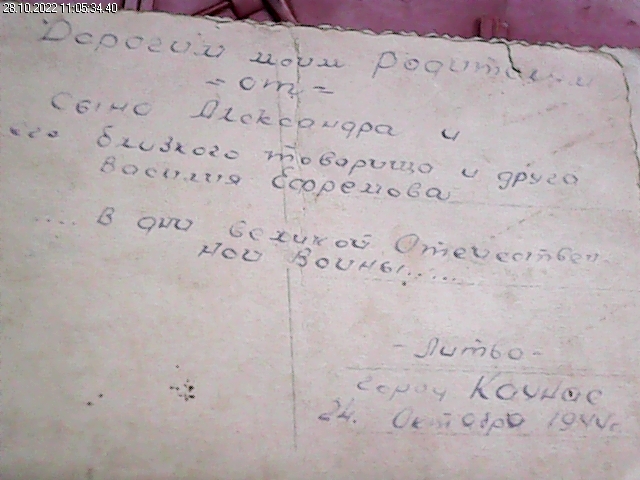 28.10.2022 11:05:34.40
Дорогим моим родителям
= от =
Сына Александра и
его близкого товарища и друга
Василия Ефремова
.... В дни великой Отечествен-
ной Войны......
- Литва -
город Каунас
24. Октября 1944г.